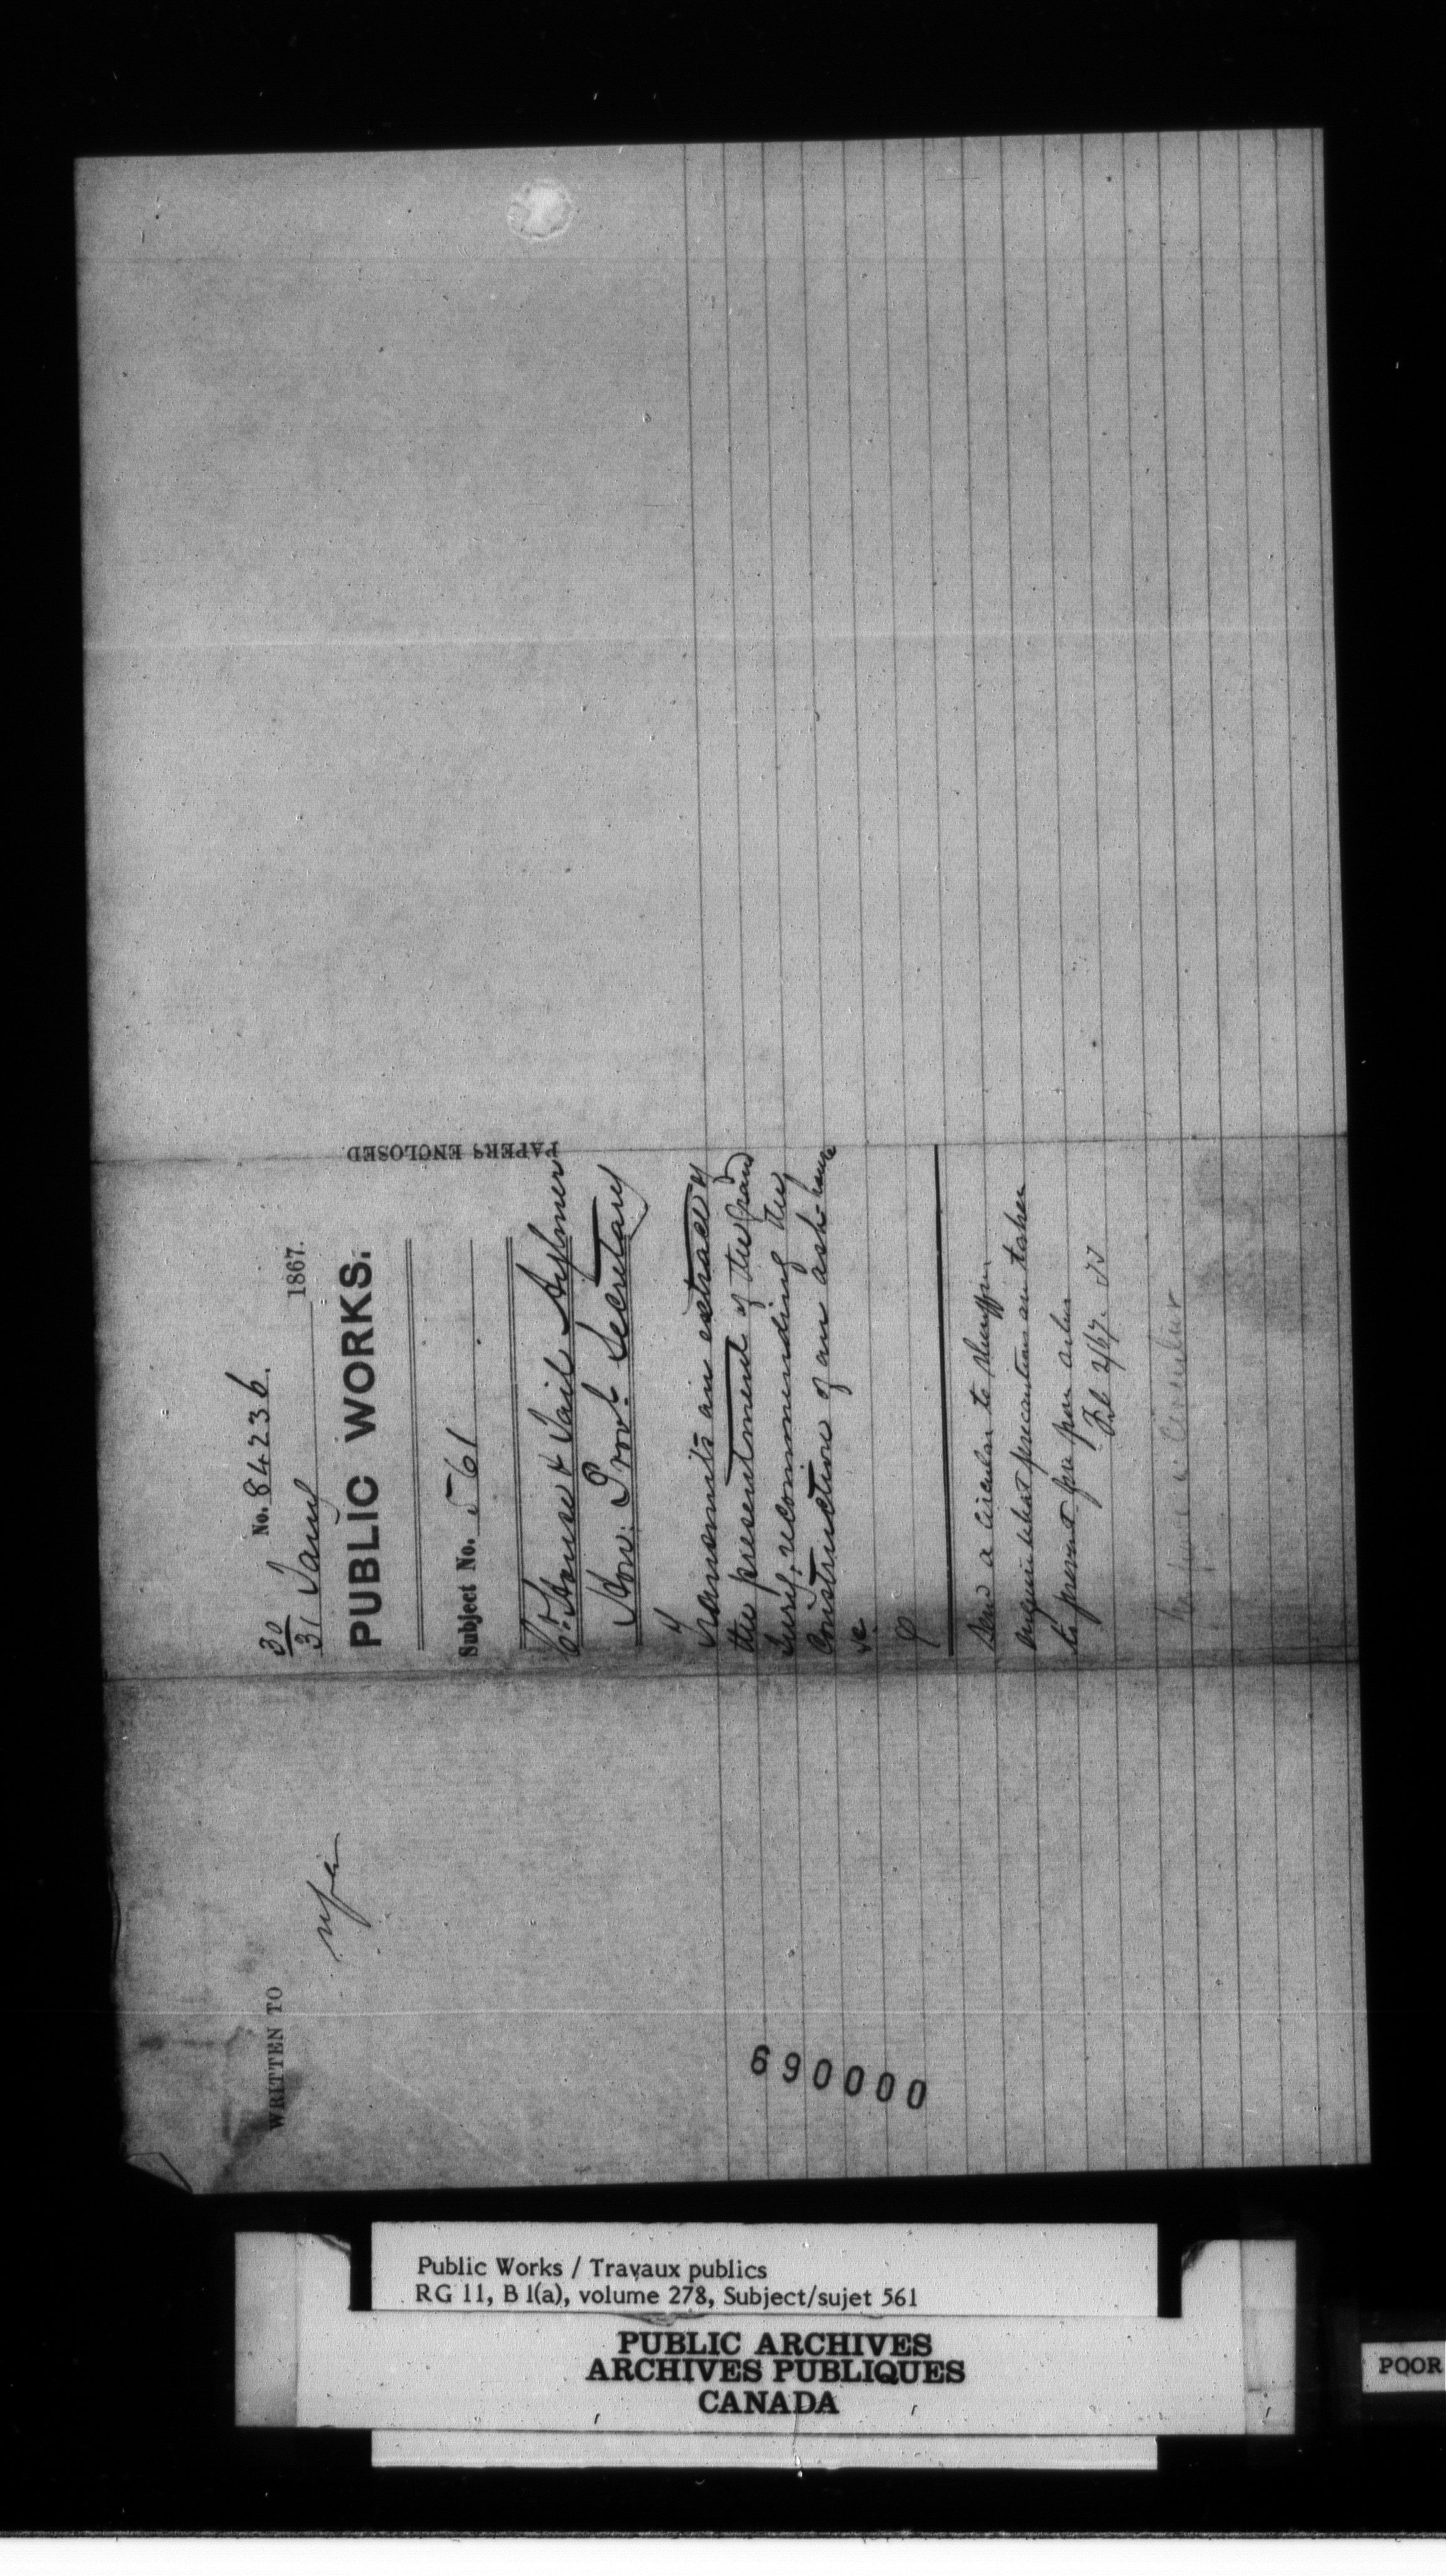 No. 84236.
30
31 Jany 1867.
PUBLIC WORKS.
Subject No. 561
Ct. House & Jail Aylmer
Hon. Prov. Secretary
Transmits an extract of
the presentment of the Grand
Jury, recommending the
Construction of an ash-house
&c.
Send a circular to Sheriffs
what precautions are taken
to prevent fire from ashes
Feb 2/67.
Circular
PAPERS ENCLOSED
WRITTEN TO
690000
Public Works / Travaux publics
RG 11, B 1(a), volume 278, Subject/sujet 561
PUBLIC ARCHIVES
ARCHIVES PUBLIQUES
CANADA
POOR